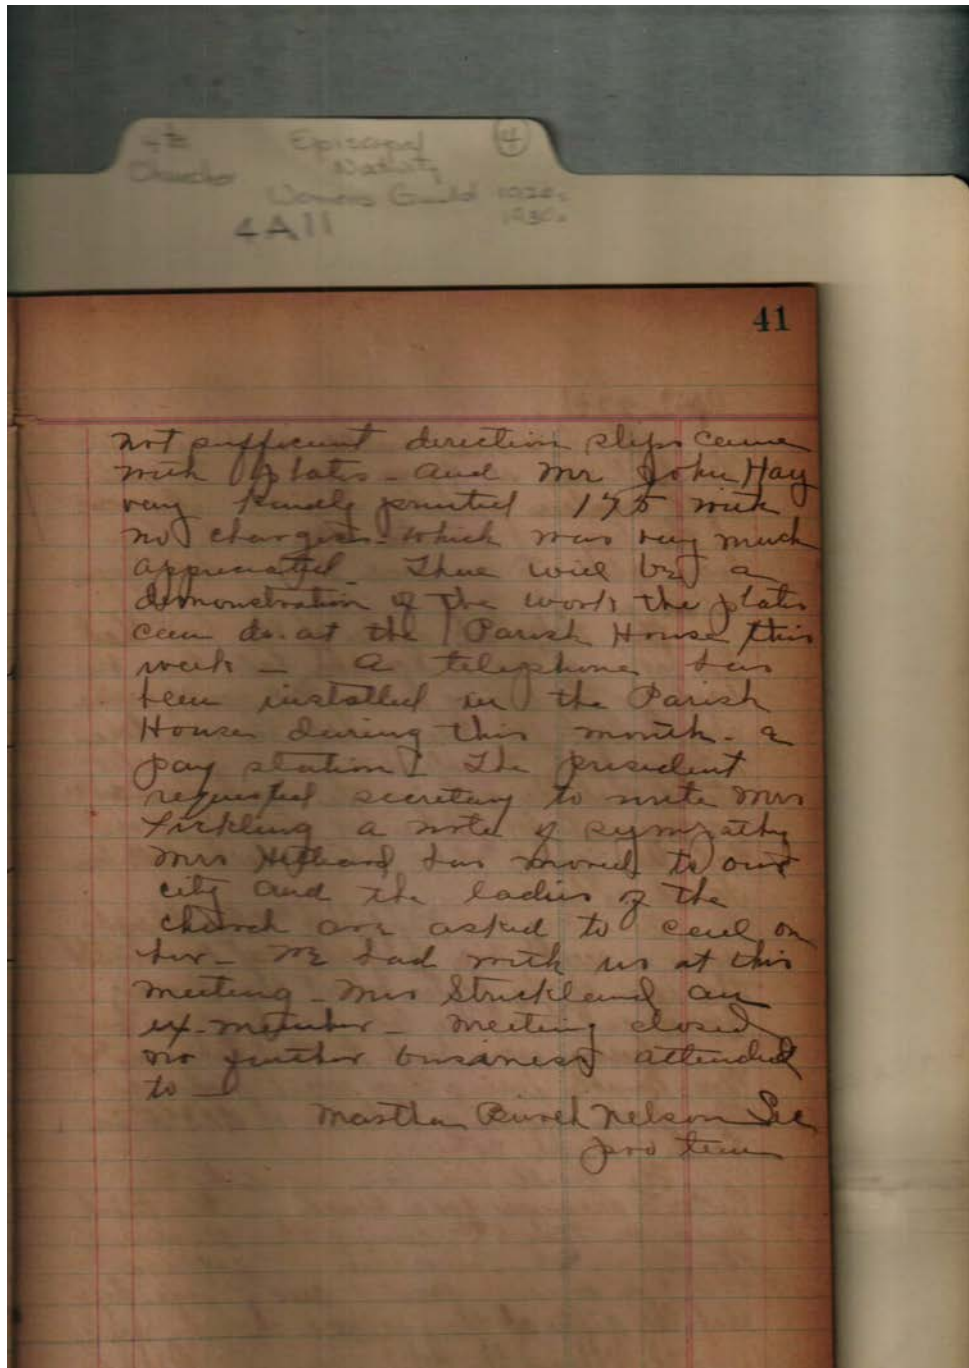 Episcopal ④
Church Nativity
Womens Guild 1920s
1930s
4A11
41
not sufficient direction slips came
with plates - and Mr John Hay
very kindly printed 175 with
no charges - which was very much
appreciated - There will be a
demonstration of the work the plates
can do at the Parish House this
week - A telephone has
been installed in the Parish
House during this month - a
pay station. The president
requested secretary to write Mrs
a note of sympathy
Mrs has moved to our
city and the ladies of the
church are asked to call on
her - We had with us at this
meeting - Mrs Strickland an
ex-member - Meeting closed
no further business attended
to -
Martha Burch Nelson Sec
pro tem